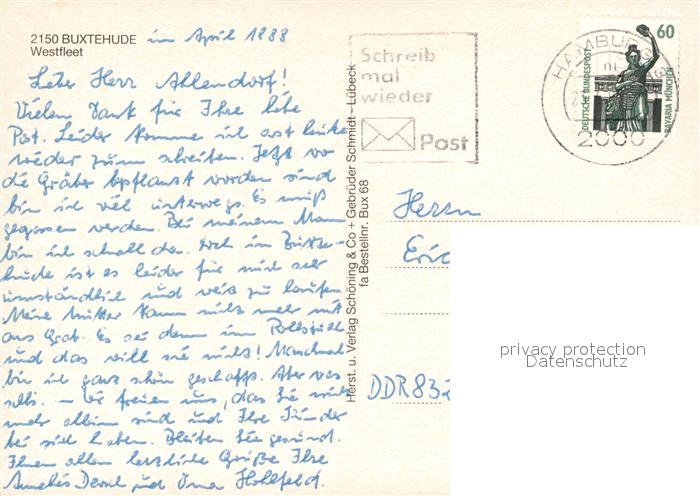 2150 BUXTEHUDE im April 1988
Westfleet
Lieber Herr Ahlendorf!
Vielen Dank für Ihre liebe
Post. Leider komme ich erst heute
wieder zum schreiben. Jetzt wo
die Gräber bepflanzt worden sind
bin ich viel unterwegs. Es muß
gegossen werden. Bei meinem Mann
bin ich schnell da. Doch in Buxte-
hude ist es leider für mich sehr
umständlich und weit zu laufen
Meine Mutter kann nicht mehr mit
ans Grab. Es sei denn im Rollstuhl
und das will sie nicht! Manchmal
bin ich ganz schön geschafft. Aber was
solls. - Wir freuen uns, das Sie nicht
mehr allein sind und Ihre Kinder
bei sich haben. Bleiben Sie gesund.
Ihnen allen herzliche Grüße Ihre
Annelies und Oma Hohlfeld.
Herst. u. Verlag Schöning & Co + Gebrüder Schmidt - Lübeck
fa Bestellnr. Bux 68
Schreib
mal
wieder
Post
HAMBURG
2000
60
DEUTSCHE BUNDESPOST
BAVARIA MÜNCHEN
Herrn
Eric
DDR 832
privacy protection
Datenschutz